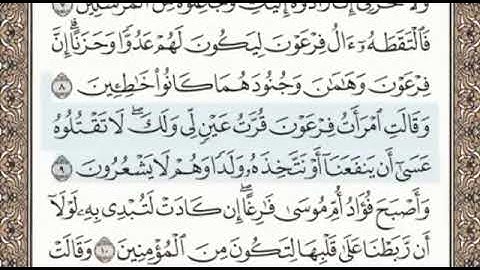 وَلَا تَحْزَنِي إِنَّا رَادُّوهُ إِلَيْكِ وَجَاعِلُوهُ مِنَ الْمُرْسَلِينَ ٧
فَالْتَقَطَهُ ءَالُ فِرْعَوْنَ لِيَكُونَ لَهُمْ عَدُوًّا وَحَزَنًا إِنَّ
فِرْعَوْنَ وَهَامَانَ وَجُنُودَهُمَا كَانُوا خَاطِئِينَ ٨
وَقَالَتِ امْرَأَتُ فِرْعَوْنَ قُرَّتُ عَيْنٍ لِي وَلَكَ لَا تَقْتُلُوهُ
عَسَى أَنْ يَنْفَعَنَا أَوْ نَتَّخِذَهُ وَلَدًا وَهُمْ لَا يَشْعُرُونَ ٩
وَأَصْبَحَ فُؤَادُ أُمِّ مُوسَى فَارِغًا إِنْ كَادَتْ لَتُبْدِي بِهِ لَوْلَا
أَنْ رَبَطْنَا عَلَى قَلْبِهَا لِتَكُونَ مِنَ الْمُؤْمِنِينَ ١٠ وَقَالَتْ